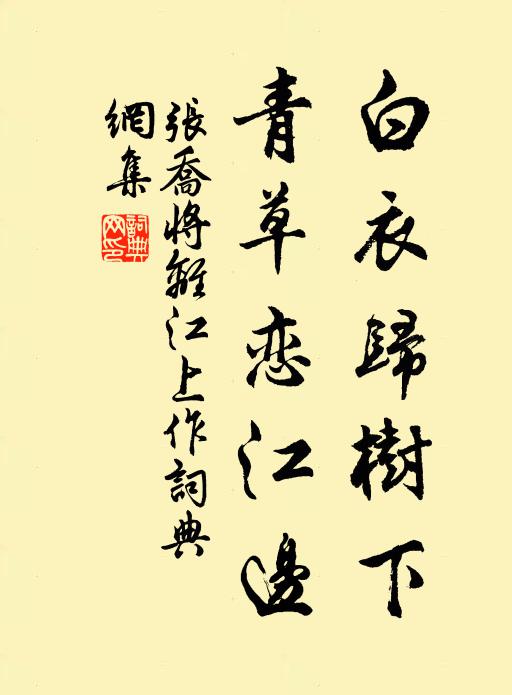 白衣歸樹下
青草恋江邊
張喬將離江上作詞典
網集
詞典
网印